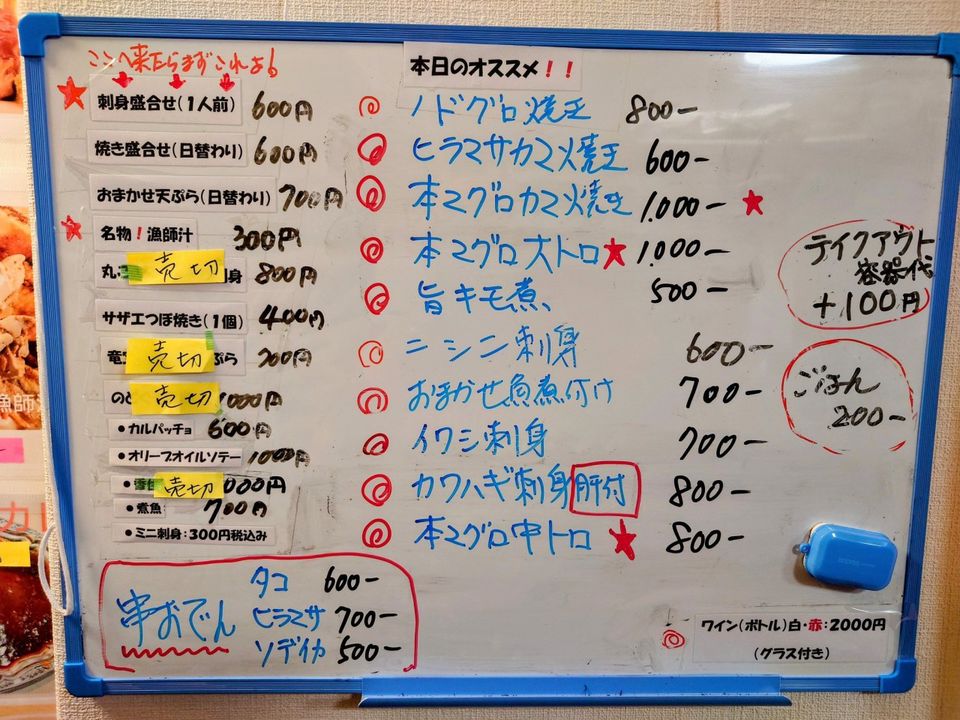 ここへ来たらまずこれよ！
刺身盛合せ(1人前) 600円
焼き盛合せ(日替わり) 600円
おまかせ天ぷら(日替わり) 700円
名物！漁師汁 300円
丸 売切 身 800円
サザエつぼ焼き(1個) 400円
竜 売切 ぷら 700円
のど 売切 1000円
●カルパッチョ 600円
●オリーブオイルソテー 1000円
● 売切 000円
●煮魚 700円
●ミニ刺身：300円税込み
串おでん
タコ 600-
ヒラマサ 700-
ソデイカ 500-
本日のオススメ！！
ノドグロ焼王 800-
ヒラマサカマ焼王 600-
本マグロカマ焼き 1,000-
本マグロ大トロ 1,000-
旨キモ煮、 500-
ニシン刺身 600-
おまかせ魚煮付け 700-
イワシ刺身 700-
カワハギ刺身肝付 800-
本マグロ中トロ 800-
テイクアウト
容器代
+100円
ごはん
200-
ワイン(ボトル)白・赤：2000円
(グラス付き)